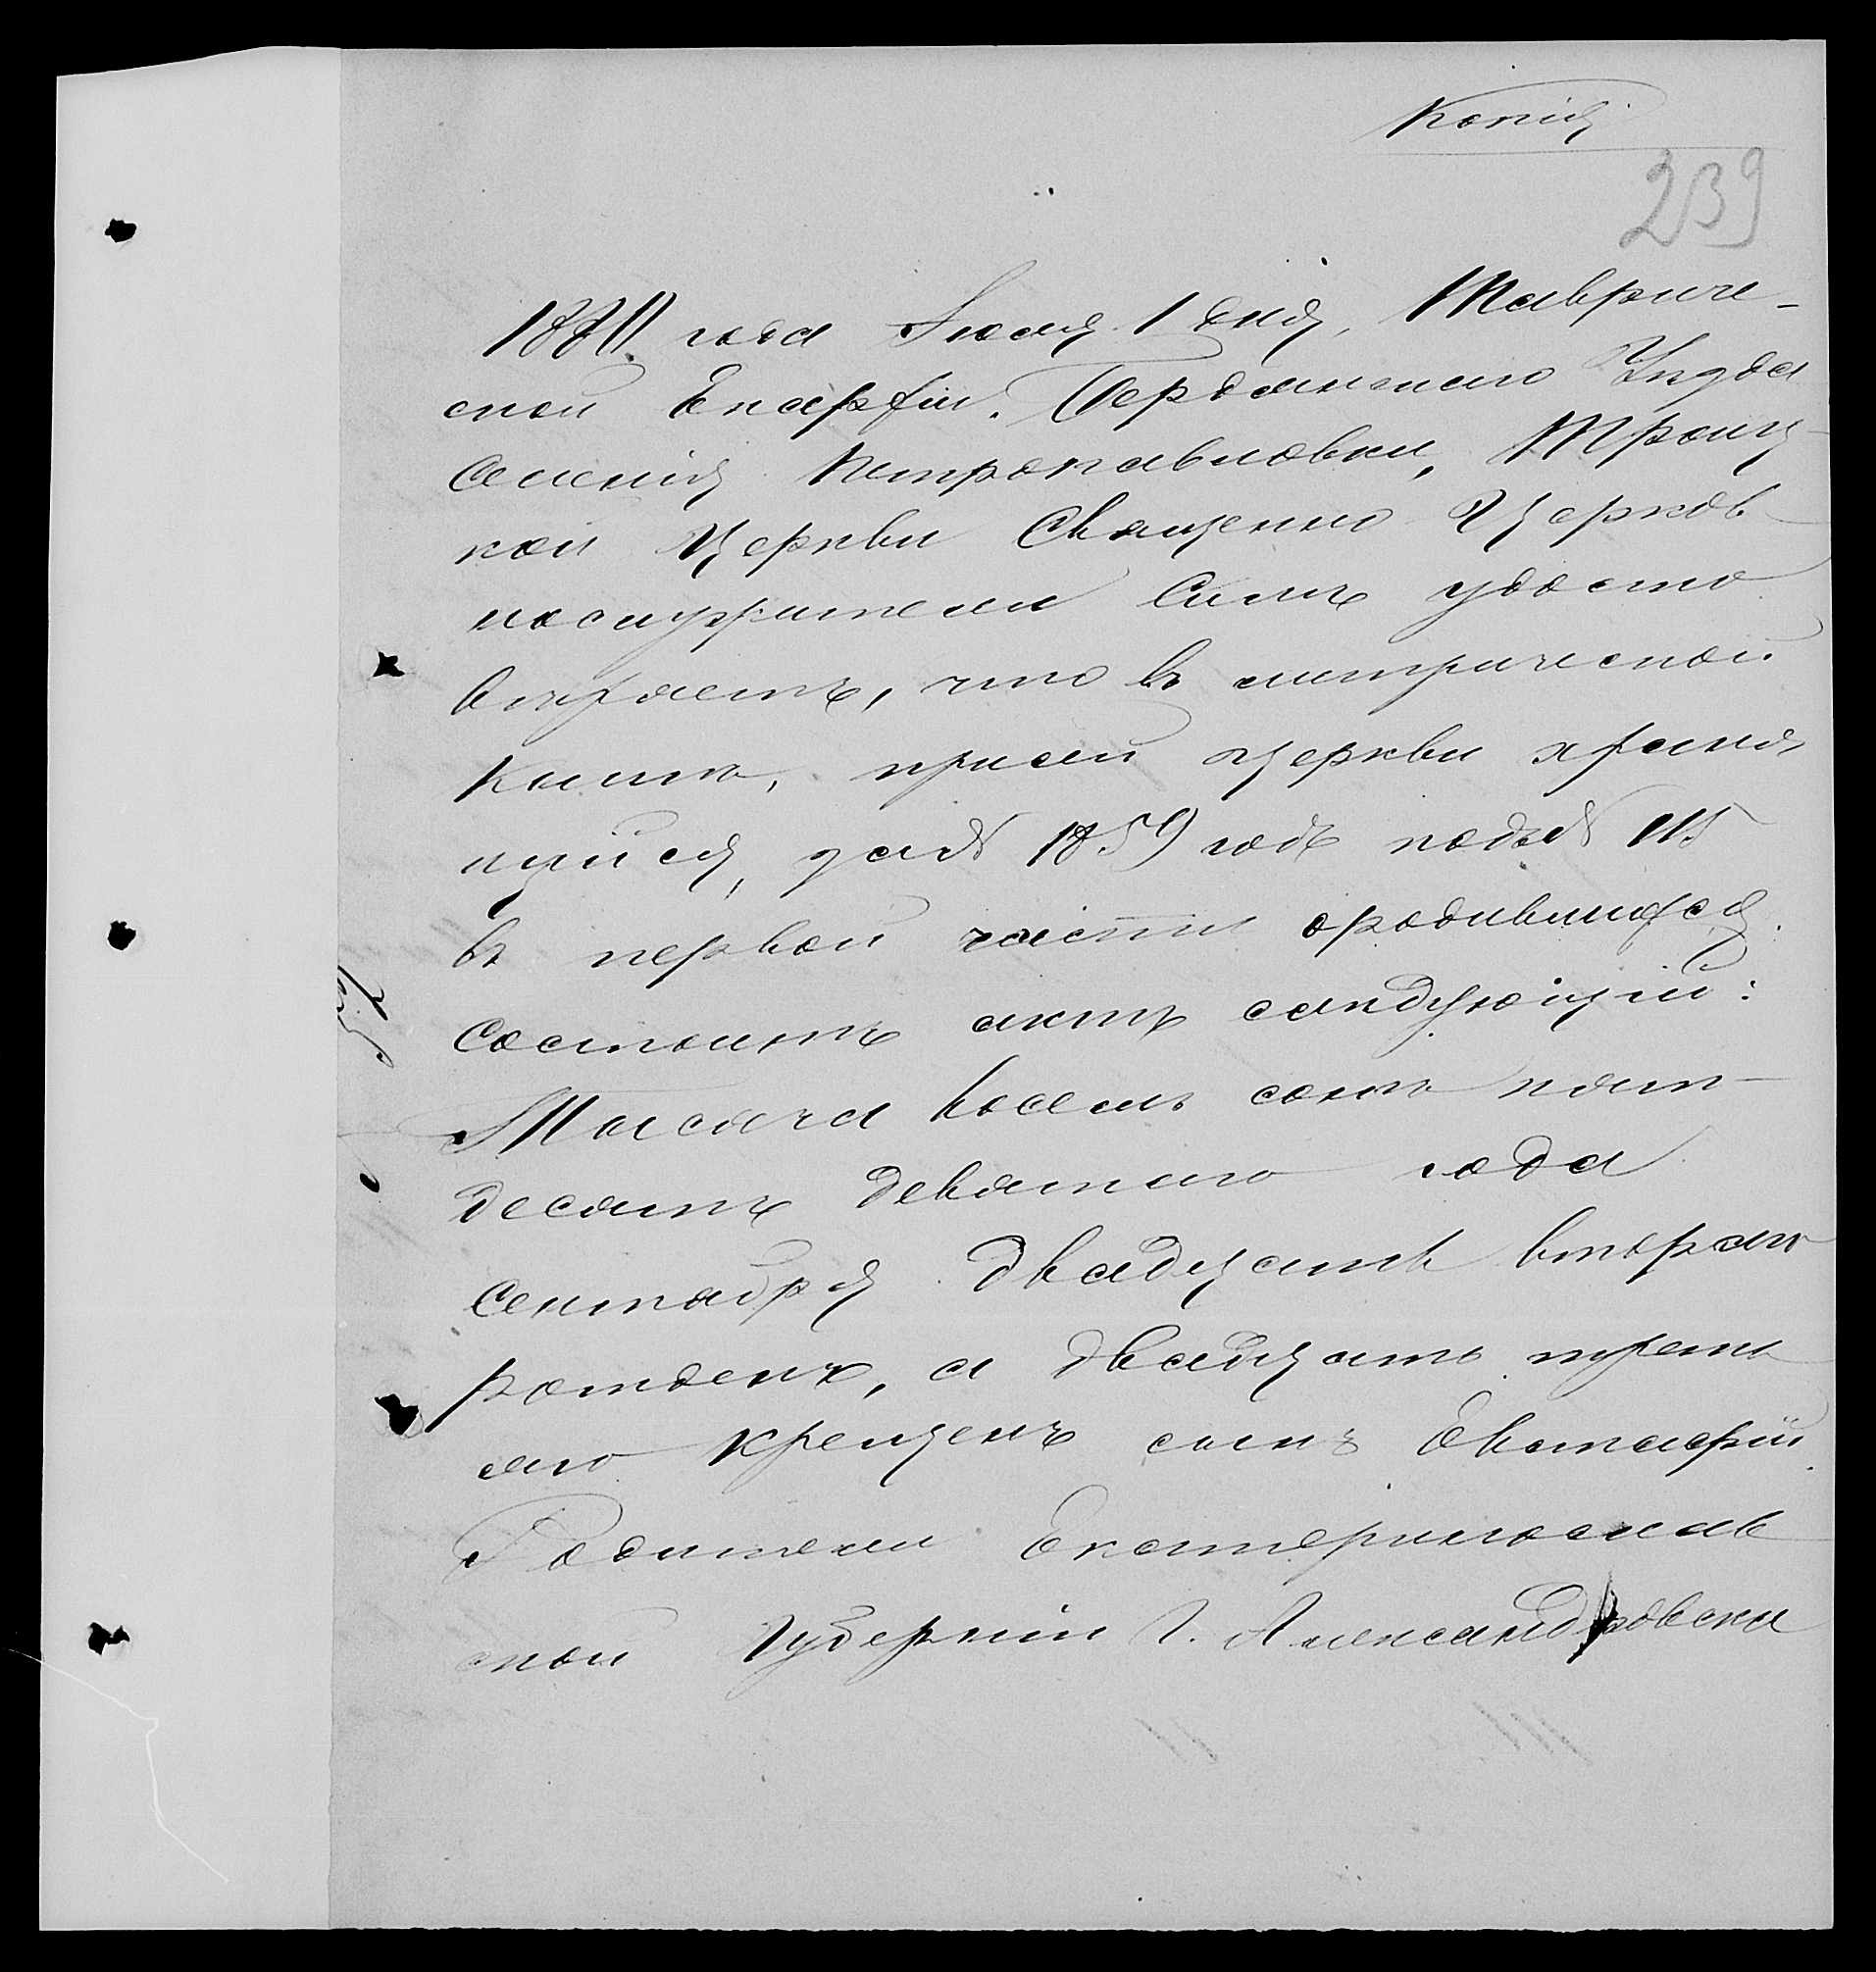 Копія
239
года Іюля 1 дня, Тавриче-
ской Епархіи. Бердянскаго Уѣзда
Селенія Петропавловки, Троиц-
кой Церкви Священно Церков
нослужители Симъ удосто
вѣряетъ, что въ метрической
Книгѣ, при сей церкви храня
щийся, за 1859 годъ подъ № 115
въ первой части о родившихся
Состоитъ актъ слѣдующій:
Тысяча восемь сотъ пять-
десятъ девятаго года
Сентября двадцать втораго
рожденъ, а двадцать треть
яго крещенъ сынъ Евстафій.
Родители Екатеринослав
ской Губерніи Г. Александровска